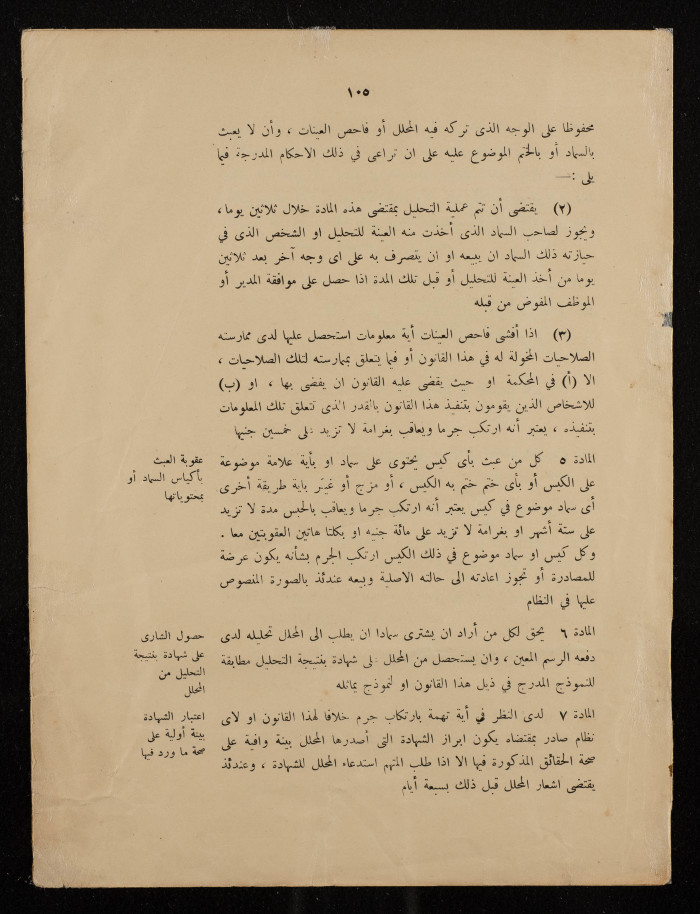 ١٠٥
محفوظا على الوجه الذى تركه فيه المحلل أو فاحص العينات ، وأن لا يعبث
بالسماد أو بالختم الموضوع عليه على ان تراعى في ذلك الاحكام المدرجة فيما
يلى :—
(٢) يقتضى أن تتم عملية التحليل بمقتضى هذه المادة خلال ثلاثين يوما ،
ويجوز لصاحب السماد الذى أخذت منه العينة للتحليل او الشخص الذى في
حيازته ذلك السماد ان يبيعه او ان يتصرف به على اى وجه آخر بعد ثلاثين
يوما من أخذ العينة للتحليل أو قبل تلك المدة اذا حصل على موافقة المدير أو
الموظف المفوض من قبله
(٣) اذا أفشى فاحص العينات أية معلومات استحصل عليها لدى ممارسته
الصلاحيات المخولة له في هذا القانون أو فيما يتعلق بممارسته لتلك الصلاحيات ،
الا (أ) في المحكمة او حيث يقضى عليه القانون ان يفضى بها ، او (ب)
للاشخاص الذين يقومون بتنفيذ هذا القانون بالقدر الذى تتعلق تلك المعلومات
بتنفيذه ، يعتبر أنه ارتكب جرما ويعاقب بغرامة لا تزيد على خمسين جنيها
المادة ٥ كل من عبث بأى كيس يحتوى على سماد او بأية علامة موضوعة
على الكيس أو بأى ختم ختم به الكيس ، أو مزج أو غيّر باية طريقة أخرى
أى سماد موضوع في كيس يعتبر أنه ارتكب جرما ويعاقب بالحبس مدة لا تزيد
على ستة أشهر او بغرامة لا تزيد على مائة جنيه او بكلتا هاتين العقوبتين معا .
وكل كيس او سماد موضوع في ذلك الكيس ارتكب الجرم بشأنه يكون عرضة
للمصادرة أو تجوز اعادته الى حالته الاصلية وبيعه عندئذ بالصورة المنصوص
عليها في النظام
عقوبة العبث
بأكياس السماد أو
بمحتوياتها
المادة ٦ يحق لكل من أراد ان يشترى سمادا ان يطلب الى المحلل تحليله لدى
دفعه الرسم المعين ، وان يستحصل من المحلل على شهادة بنتيجة التحليل مطابقة
للنموذج المدرج في ذيل هذا القانون او لنموذج يماثله
حصول الشارى
على شهادة بنتيجة
التحليل من
المحلل
المادة ٧ لدى النظر في أية تهمة بارتكاب جرم خلافا لهذا القانون او لاى
نظام صادر بمقتضاه يكون ابراز الشهادة التى أصدرها المحلل بينة وافية على
صحة الحقائق المذكورة فيها الا اذا طلب المتهم استدعاء المحلل للشهادة ، وعندئذ
يقتضى اشعار المحلل قبل ذلك بسبعة أيام
اعتبار الشهادة
بينة أولية على
صحة ما ورد فيها